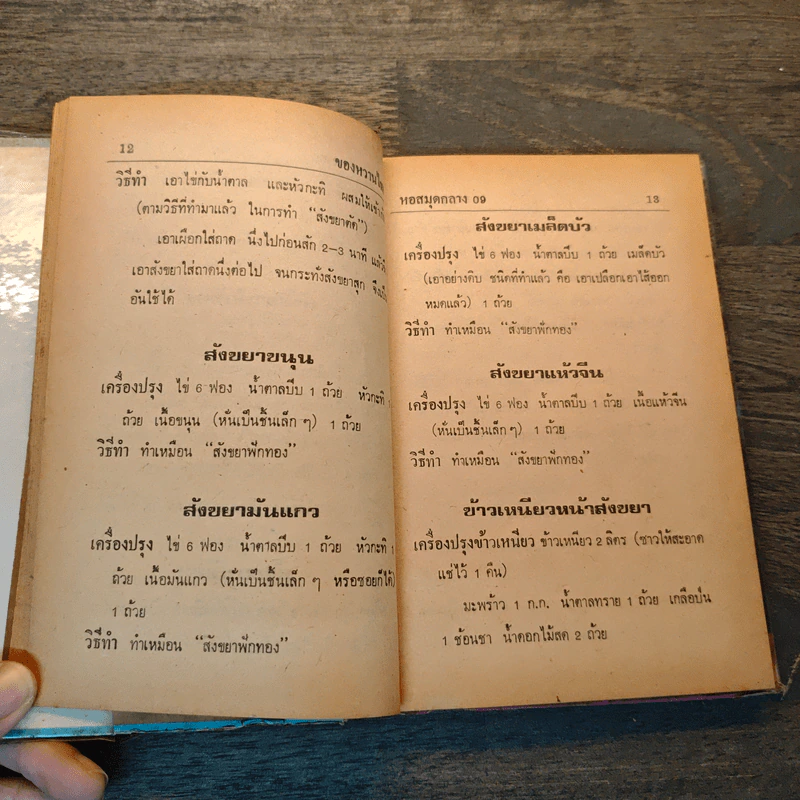 12
ของหวานไทย
วิธีทำ เอาไข่กับน้ำตาล และหัวกะทิ ผสมให้เข้ากัน
(ตามวิธีที่ทำมาแล้ว ในการทำ “สังขยาตัด”)
เอาเผือกใส่ถาด นึ่งไปก่อนสัก 2–3 นาที แล้วจึง
เอาสังขยาใส่ถาดนึ่งต่อไป จนกระทั่งสังขยาสุก จึงเป็น
อันใช้ได้
สังขยาขนุน
เครื่องปรุง ไข่ 6 ฟอง น้ำตาลปีบ 1 ถ้วย หัวกะทิ 1
ถ้วย เนื้อขนุน (หั่นเป็นชิ้นเล็ก ๆ) 1 ถ้วย
วิธีทำ ทำเหมือน “สังขยาฟักทอง”
สังขยามันแกว
เครื่องปรุง ไข่ 6 ฟอง น้ำตาลปีบ 1 ถ้วย หัวกะทิ 1
ถ้วย เนื้อมันแกว (หั่นเป็นชิ้นเล็ก ๆ หรือซอยก็ได้)
1 ถ้วย
วิธีทำ ทำเหมือน “สังขยาฟักทอง”
หอสมุดกลาง 09 13
สังขยาเมล็ดบัว
เครื่องปรุง ไข่ 6 ฟอง น้ำตาลปีบ 1 ถ้วย เมล็ดบัว
(เอาอย่างดิบ ชนิดที่ทำแล้ว คือ เอาเปลือกเอาไส้ออก
หมดแล้ว) 1 ถ้วย
วิธีทำ ทำเหมือน “สังขยาฟักทอง”
สังขยาแห้วจีน
เครื่องปรุง ไข่ 6 ฟอง น้ำตาลปีบ 1 ถ้วย เนื้อแห้วจีน
(หั่นเป็นชิ้นเล็ก ๆ) 1 ถ้วย
วิธีทำ ทำเหมือน “สังขยาฟักทอง”
ข้าวเหนียวหน้าสังขยา
เครื่องปรุงข้าวเหนียว ข้าวเหนียว 2 ลิตร (ซาวให้สะอาด
แช่ไว้ 1 คืน)
มะพร้าว 1 ก.ก. น้ำตาลทราย 1 ถ้วย เกลือป่น
1 ช้อนชา น้ำดอกไม้สด 2 ถ้วย